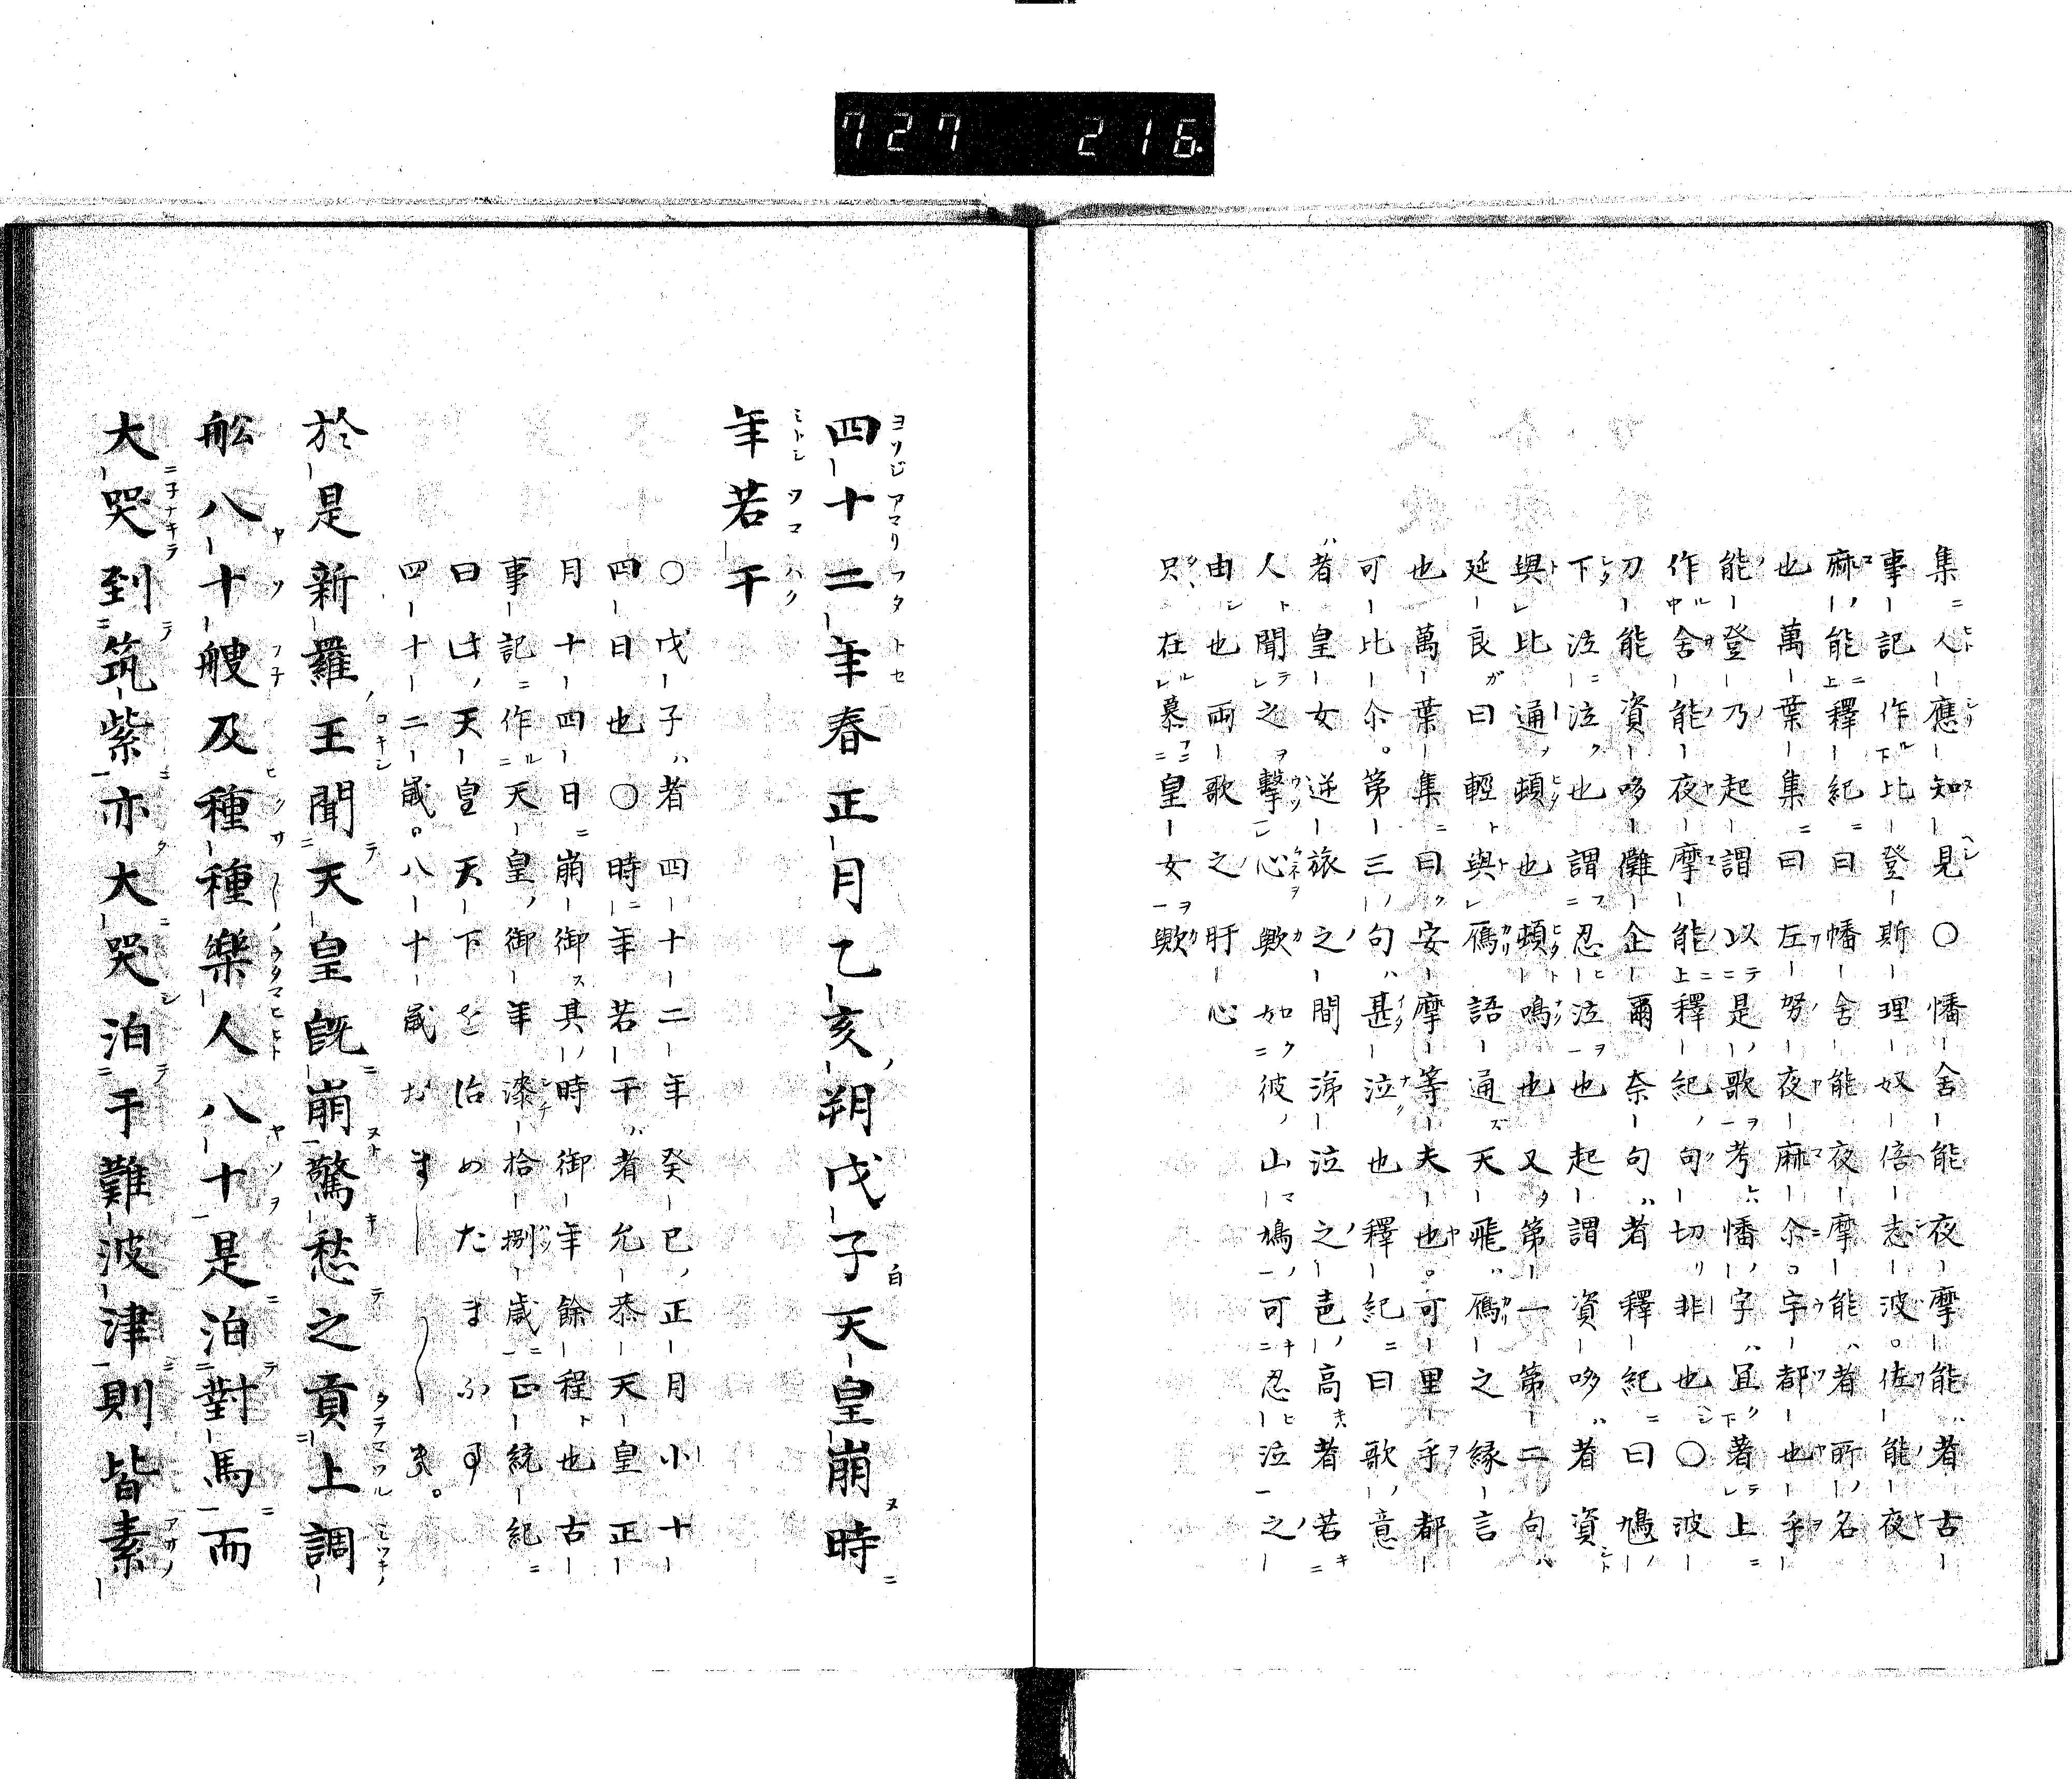 727 216
集人應知見〇幡舍能夜摩能者古
事記作比登斯理奴倍志波佐能夜
麻能釋紀曰幡舍能夜摩能者所名
也萬葉集曰左努夜麻尒宇都也乎
能登乃起謂以是歌考幡字宜著上
作舍能夜摩能釋紀句切非也〇波
刀能資哆儺企爾奈句者釋紀曰鳩
下泣泣也謂忍泣也起謂資哆者資
與比通頓也頓鳴也又第一第二句
延良曰輕與鴈語通天飛鴈之縁言
也萬葉集曰安摩等夫也可里乎都
可比尒第三句甚泣也釋紀曰歌意
者皇女逆旅之間涕泣之邑高者若
人聞之擊心歟如彼山鳩可忍泣之
由也兩歌之肝心
只在慕皇女歟
四十二年春正月乙亥朔戊子天皇崩時
年若干
〇戊子者四十二年癸巳正月小十
四日也〇時年若干者允恭天皇正
月十四日崩御其時御年餘程也古
事記作天皇御年漆拾捌歳正統紀
曰此天皇天下を治めたまふ事
四十二歳八十歳おましましき
於是新羅王聞天皇既崩驚愁之貢上調
舩八十艘及種種樂人八十是泊對馬而
大哭到筑紫亦大哭泊于難波津則皆素